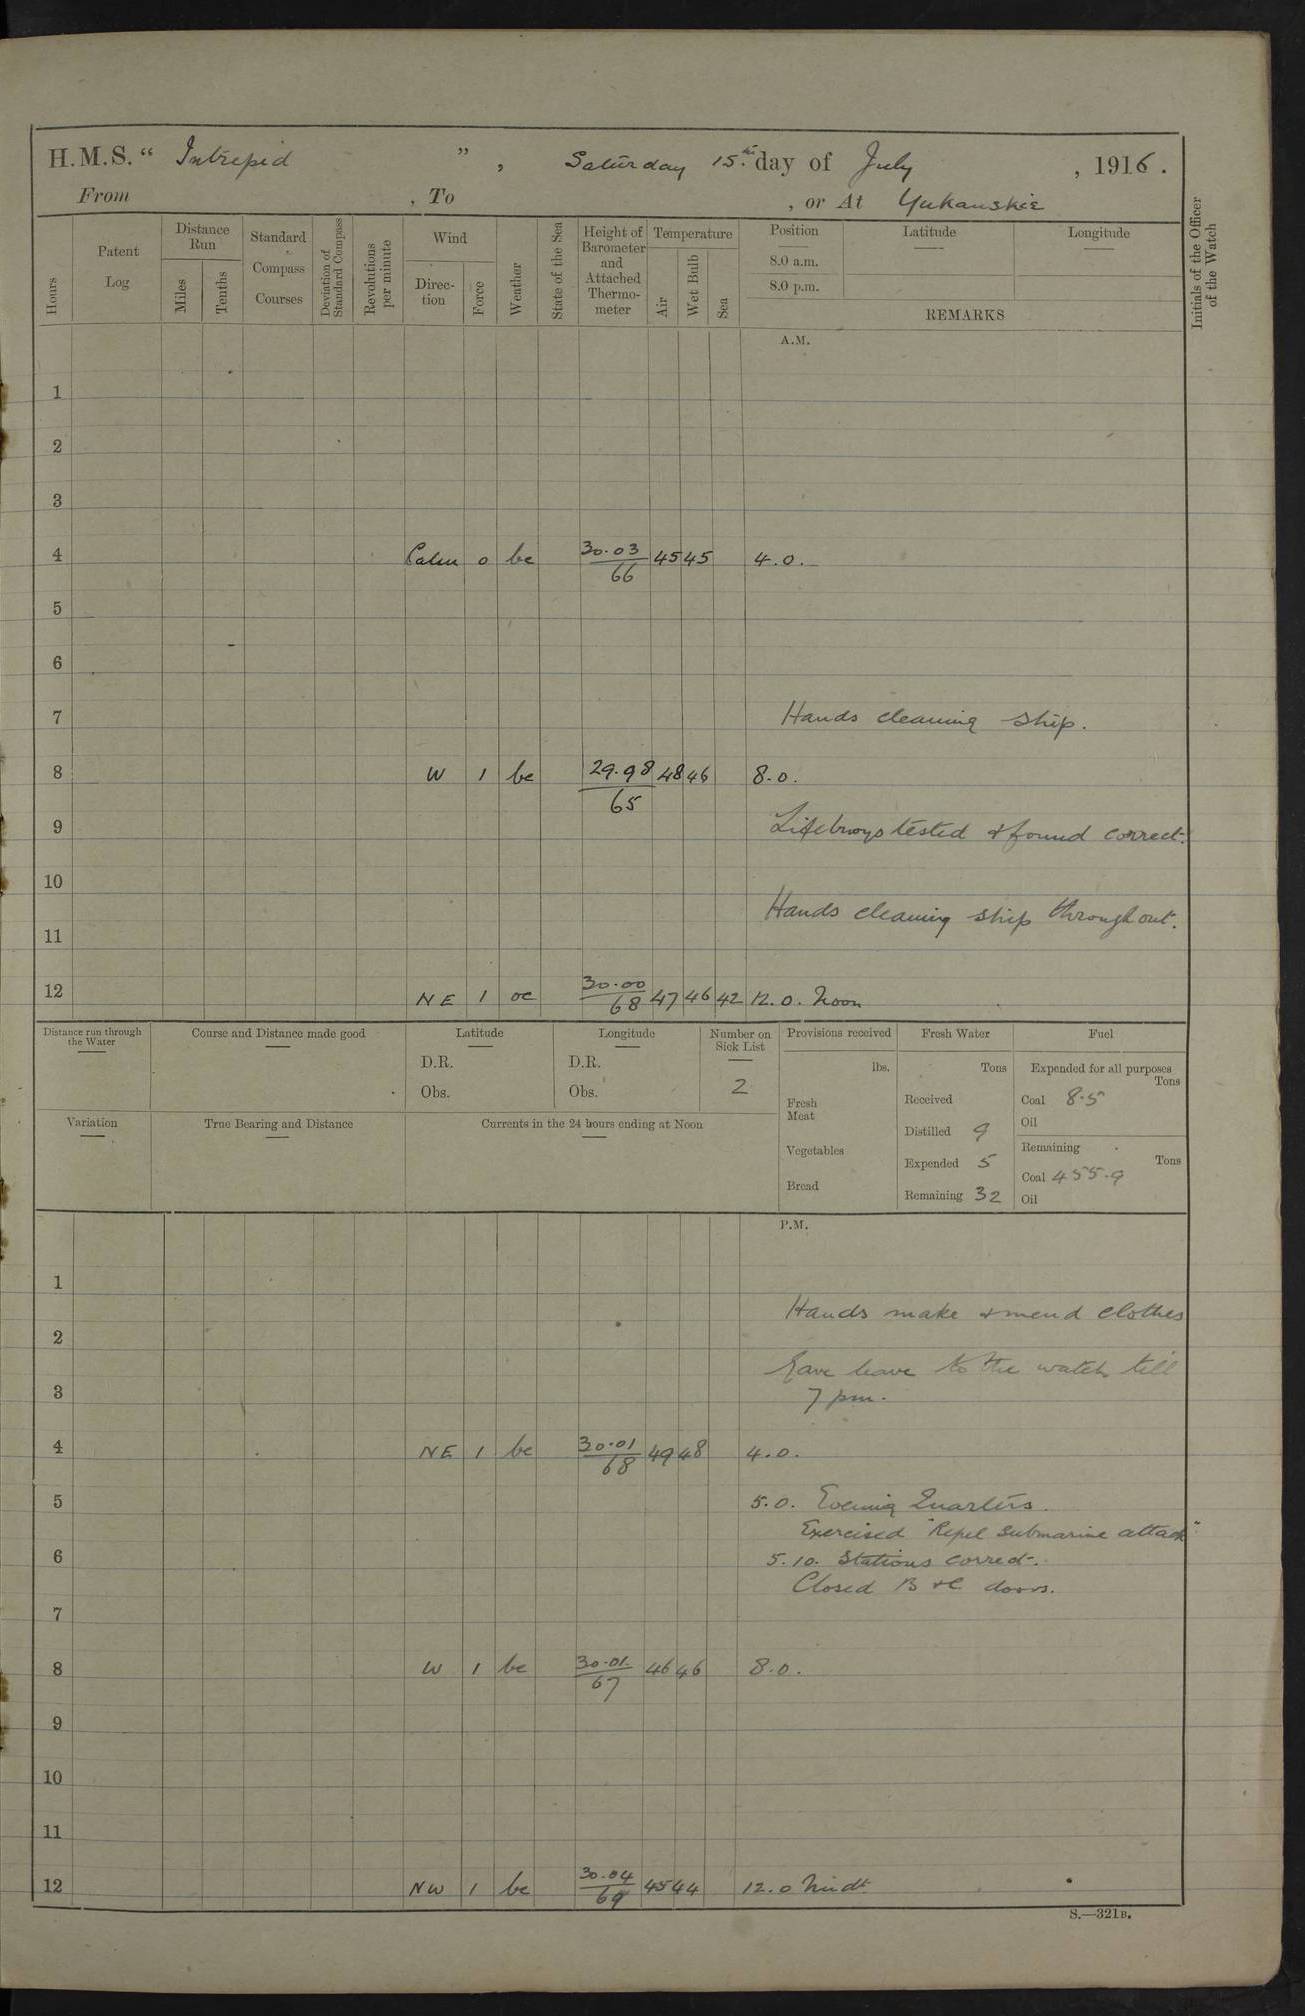 H.M.S. “ Intrepid ” , Saturday 15th day of July , 1916.
From , To , or At Yukanskie
Hours
Patent Log
Distance Run
Miles
Tenths
Standard Compass Courses
Deviation of Standard Compass
Revolutions per minute
Wind
Direc-tion
Force
Weather
State of the Sea
Height of Barometer and Attached Thermo-meter
Temperature
Air
Wet Bulb
Sea
Position
8.0 a.m.
8.0 p.m.
Latitude
Longitude
REMARKS
Initials of the Officer of the Watch
A.M.
1
2
3
4 Calm 0 bc 30.03 66 45 45 4.0.
5
6
7 Hands cleaning ship.
8 W 1 bc 29.98 65 48 46 8.0.
9 Lifebuoys tested & found correct.
10
Hands cleaning ship throughout.
11
12 NE 1 oc 30.00 68 47 46 42 12.0. Noon
Distance run through the Water
Course and Distance made good
Latitude
D.R.
Obs.
Longitude
D.R.
Obs.
Number on Sick List
2
Provisions received
lbs.
Fresh Meat
Vegetables
Bread
Fresh Water
Tons
Received
Distilled 9
Expended 5
Remaining 32
Fuel
Expended for all purposes
Tons
Coal 8.5
Oil
Remaining
Tons
Coal 455.9
Oil
Variation
True Bearing and Distance
Currents in the 24 hours ending at Noon
P.M.
1
Hands make & mend clothes
2
Gave leave to the watch till
3 7 pm.
4 NE 1 bc 30.01 68 49 48 4.0.
5 5.0. Evening Quarters.
Exercised "Repel submarine attack".
6 5.10. Stations correct.
Closed B & C doors.
7
8 W 1 bc 30.01 67 46 46 8.0.
9
10
11
12 NW 1 bc 30.04 69 45 44 12.0 Midt
S.—321B.